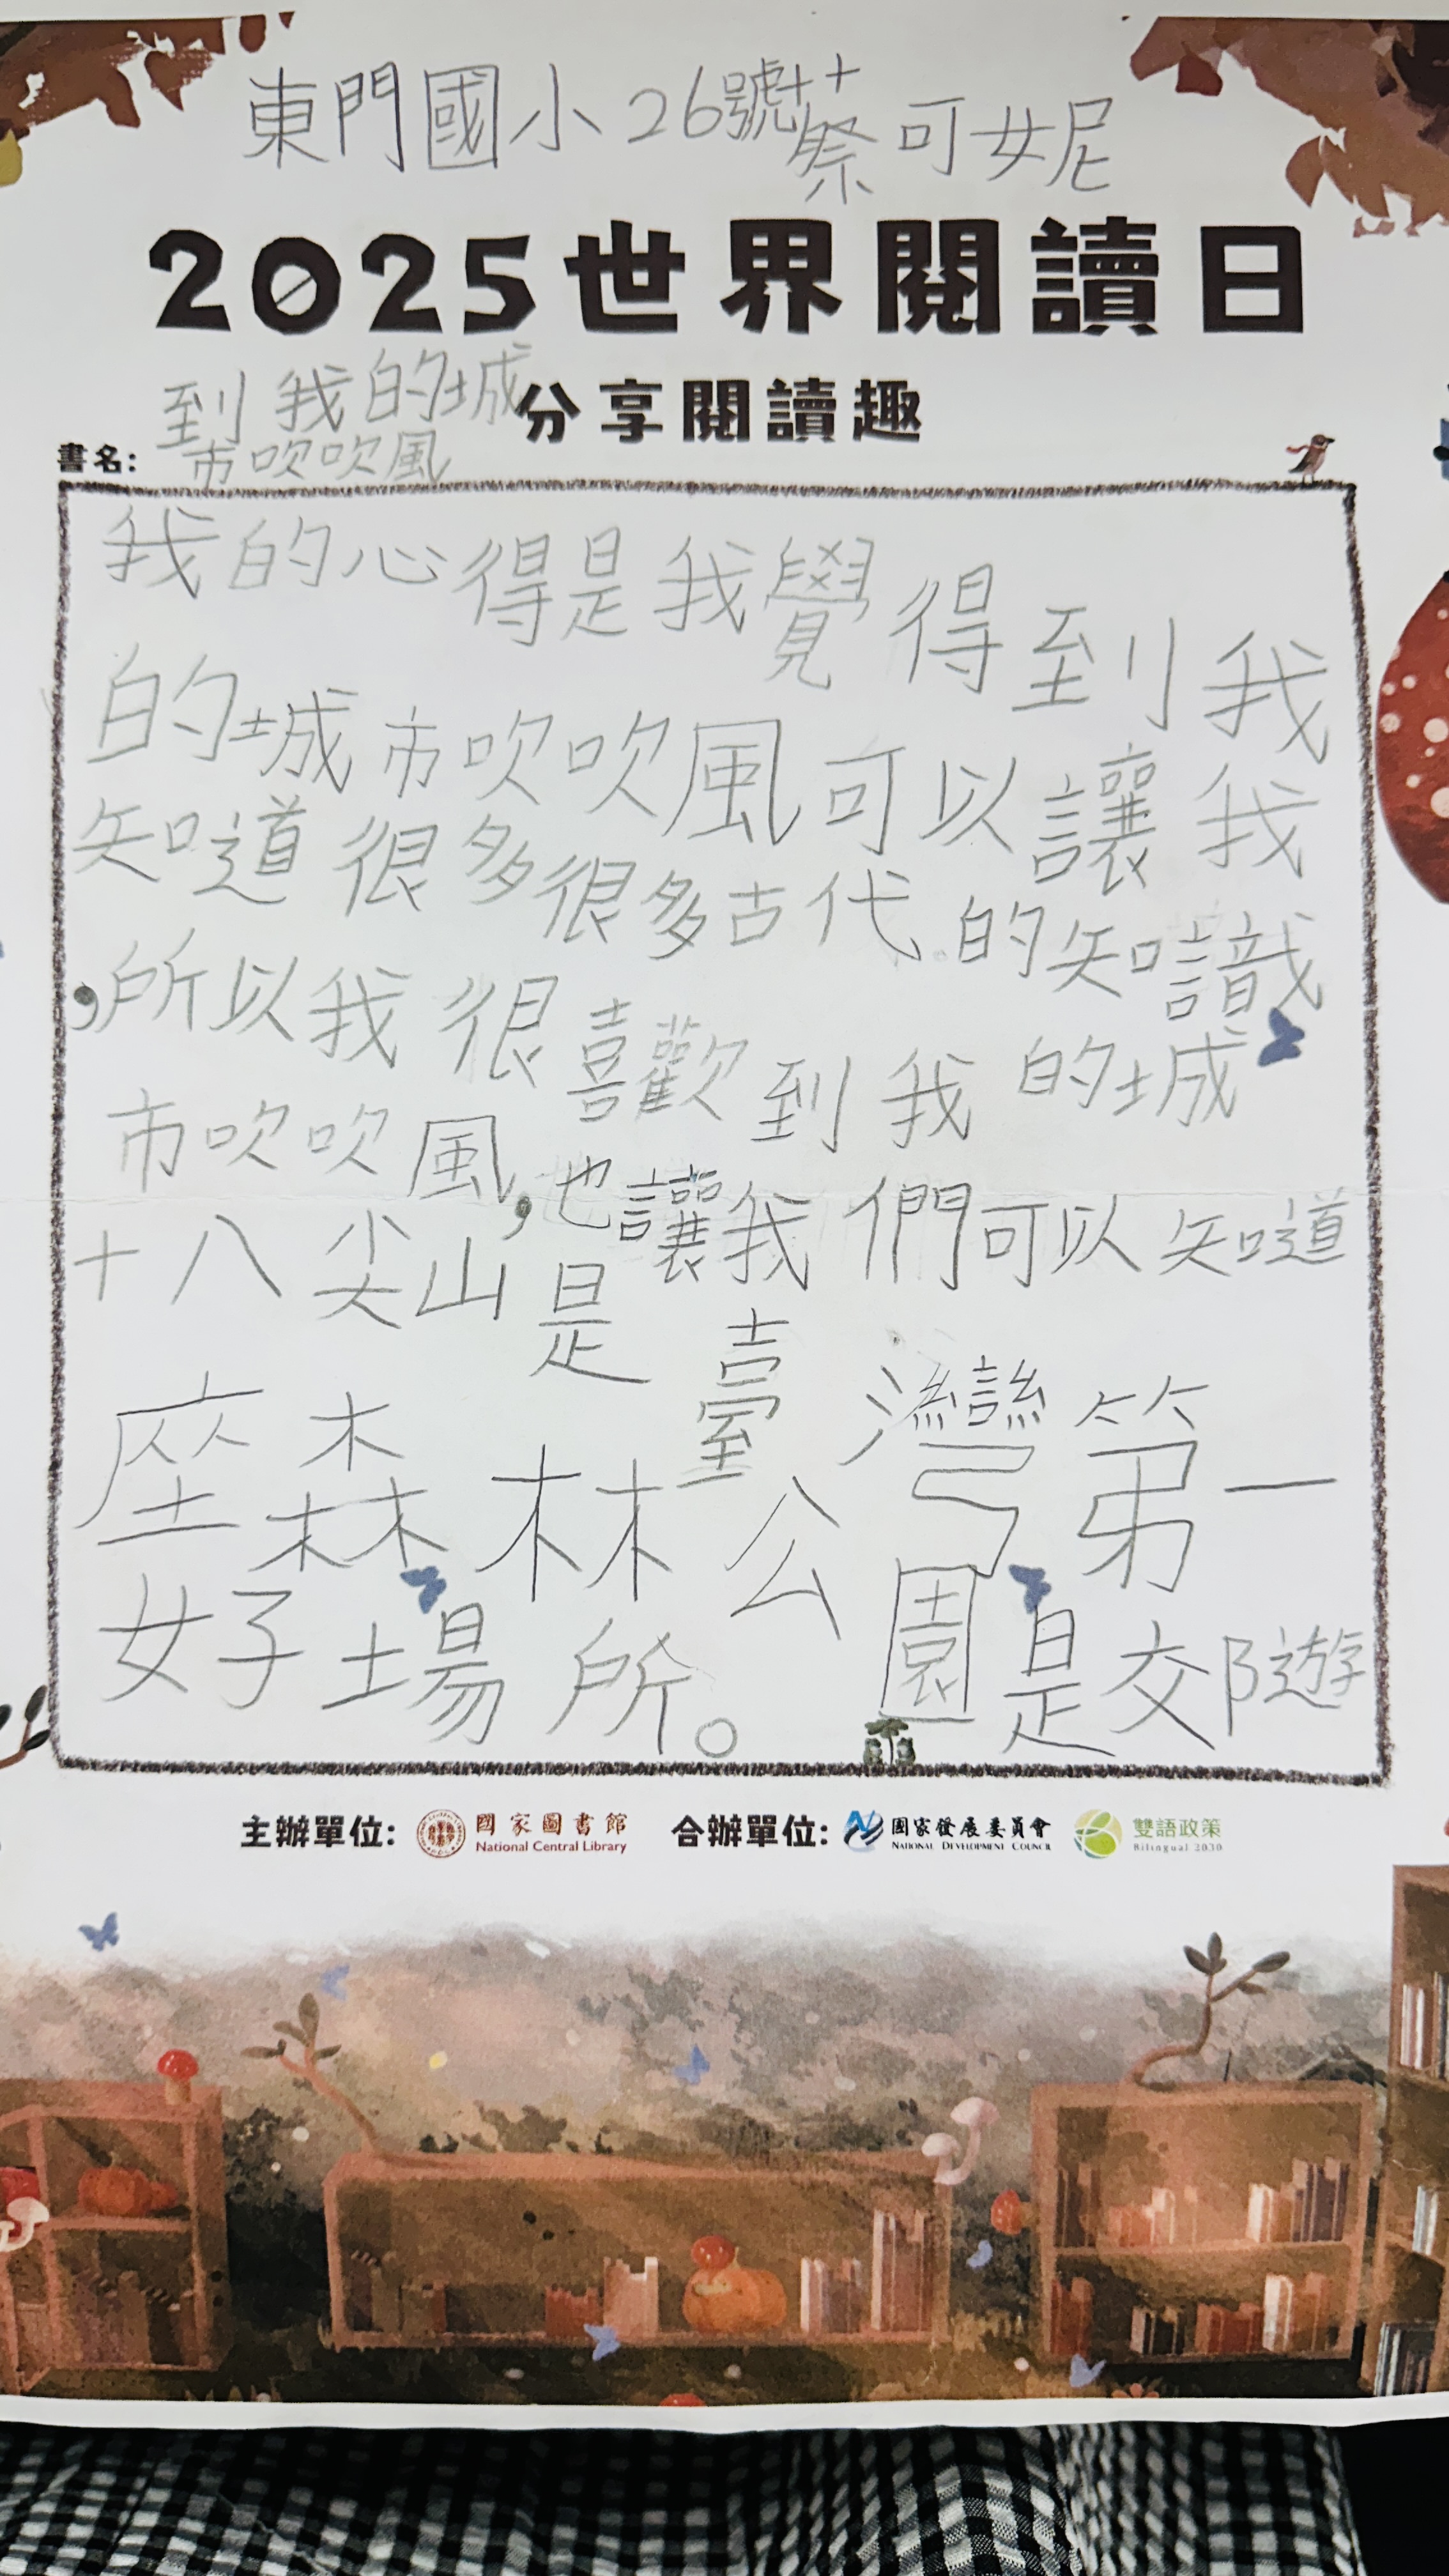 東門國小26號蔡可妮
2025世界閱讀日
分享閱讀趣
書名:
到我的城
市吹吹風
我的心得是我覺得到我
的城市吹吹風可以讓我
知道很多很多古代的知識
,所以我很喜歡到我的城
市吹吹風,也讓我們可以知道
十八尖山是臺灣第一
座森林公園是交遊
好場所。
主辦單位:
國家圖書館
National Central Library
合辦單位:
國家發展委員會
National Development Council
雙語政策
Bilingual 2030